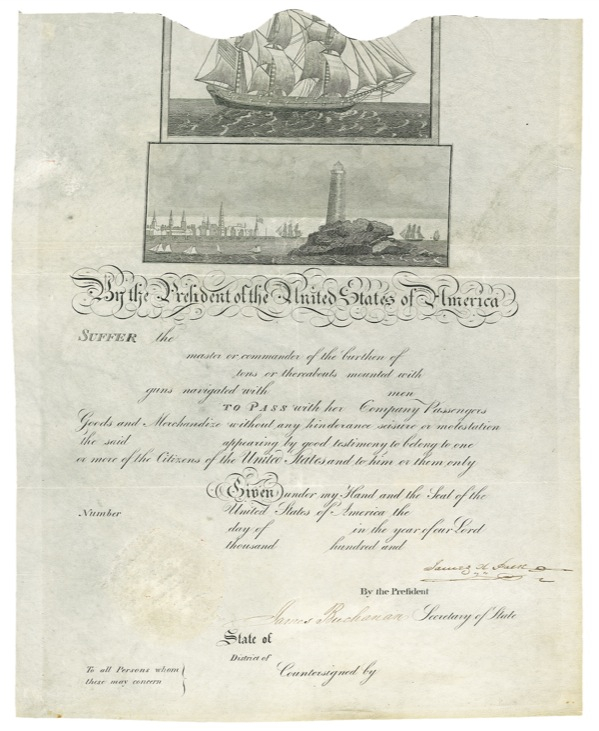 By the President of the United States of America
SUFFER the
master or commander of the burthen of
tons or thereabouts mounted with
guns navigated with men
TO PASS with her Company Passengers
Goods and Merchandize without any hinderance seisure or molestation
the said appearing by good testimony to belong to one
or more of the Citizens of the United States and to him or them only
Given under my Hand and the Seal of the
Number United States of America the
day of in the year of our Lord
thousand hundred and
James K Polk
By the President
James Buchanan Secretary of State
State of
District of
Countersigned by
To all Persons whom
these may concern